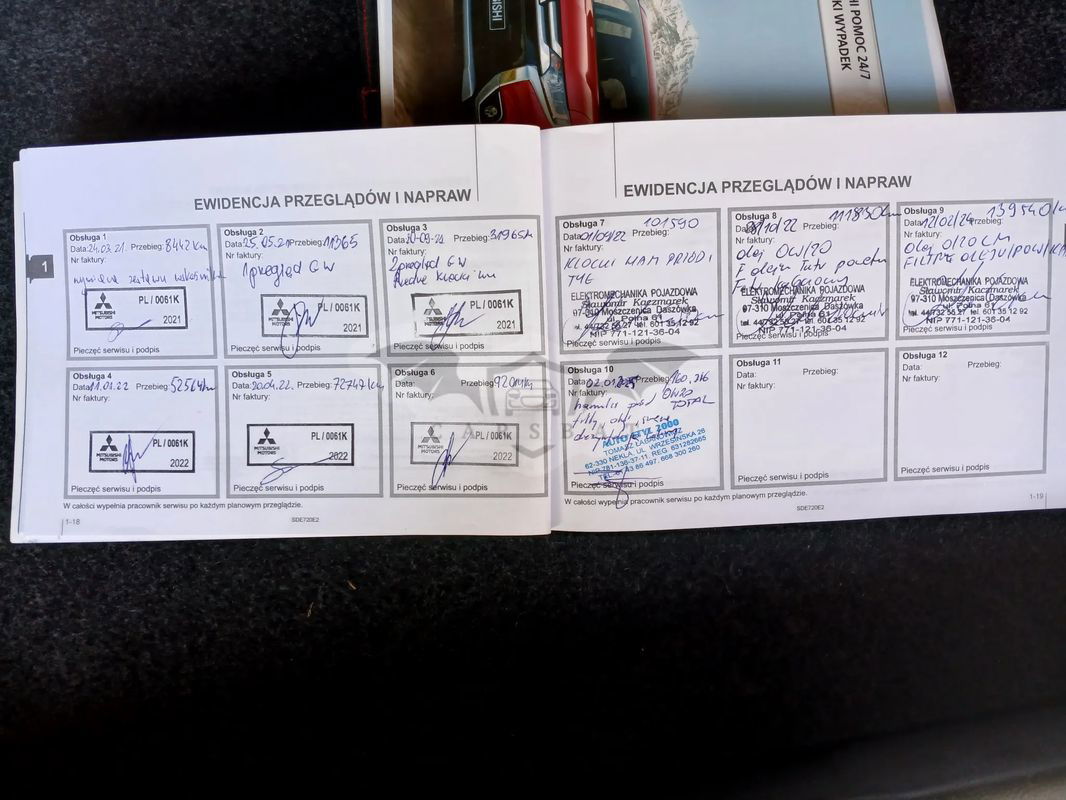 HI POMOC 24/7
KI WYPADEK
EWIDENCJA PRZEGLĄDÓW I NAPRAW
1
Obsługa 1
Data: 24.03.21. Przebieg: 8442 km
Nr faktury:
wymiana zestawu
MITSUBISHI MOTORS
PL / 0061K
2021
Pieczęć serwisu i podpis
Obsługa 2
Data: 25.05.21 Przebieg: 11365
Nr faktury:
1 przegląd GW
MITSUBISHI MOTORS
PL / 0061K
2021
Pieczęć serwisu i podpis
Obsługa 3
Data: 30-09-21 Przebieg: 31965
Nr faktury:
2 przegląd GW
klocki
MITSUBISHI MOTORS
PL / 0061K
2021
Pieczęć serwisu i podpis
Obsługa 4
Data: 11.01.22 Przebieg: 52564 km
Nr faktury:
MITSUBISHI MOTORS
PL / 0061K
2022
Pieczęć serwisu i podpis
Obsługa 5
Data: 20.04.22. Przebieg: 72747 km
Nr faktury:
MITSUBISHI MOTORS
PL / 0061K
2022
Pieczęć serwisu i podpis
Obsługa 6
Data: Przebieg:
Nr faktury:
MITSUBISHI MOTORS
PL / 0061K
2022
Pieczęć serwisu i podpis
W całości wypełnia pracownik serwisu po każdym planowym przeglądzie.
1-18
SDE720E2
EWIDENCJA PRZEGLĄDÓW I NAPRAW
Obsługa 7
101590
Data: 01/09/22 Przebieg:
Nr faktury:
KLOCKI HAM PRZÓD i
TYŁ
ELEKTROMECHANIKA POJAZDOWA
Sławomir Kaczmarek
97-310 Moszczenica Daszówka
ul. Polna 61
tel. 44/732 55 27 tel. 601 35 12 92
NIP 771-121-36-04
Pieczęć serwisu i podpis
Obsługa 8
111830 km
Data: /10/22 Przebieg:
Nr faktury:
olej OW/20
ELEKTROMECHANIKA POJAZDOWA
Sławomir Kaczmarek
97-310 Moszczenica Daszówka
ul. Polna 61
tel. 44/732 55 27 tel. 601 35 12 92
NIP 771-121-36-04
Pieczęć serwisu i podpis
Obsługa 9
139540 km
Data: 12/02/24 Przebieg:
Nr faktury:
olej 0/20
FILTR OLEJU/POW/
ELEKTROMECHANIKA POJAZDOWA
Sławomir Kaczmarek
97-310 Moszczenica Daszówka
ul. Polna 61
tel. 44/732 55 27 tel. 601 35 12 92
NIP 771-121-36-04
Pieczęć serwisu i podpis
Obsługa 10
Data: Przebieg:
Nr faktury:
OW20
TOTAL
AUTO STYL 2000
62-330 NEKLA, UL. WRZESIŃSKA 26
Pieczęć serwisu i podpis
Obsługa 11
Data: Przebieg:
Nr faktury:
Pieczęć serwisu i podpis
Obsługa 12
Data: Przebieg:
Nr faktury:
Pieczęć serwisu i podpis
W całości wypełnia pracownik serwisu po każdym planowym przeglądzie.
SDE720E2
1-19